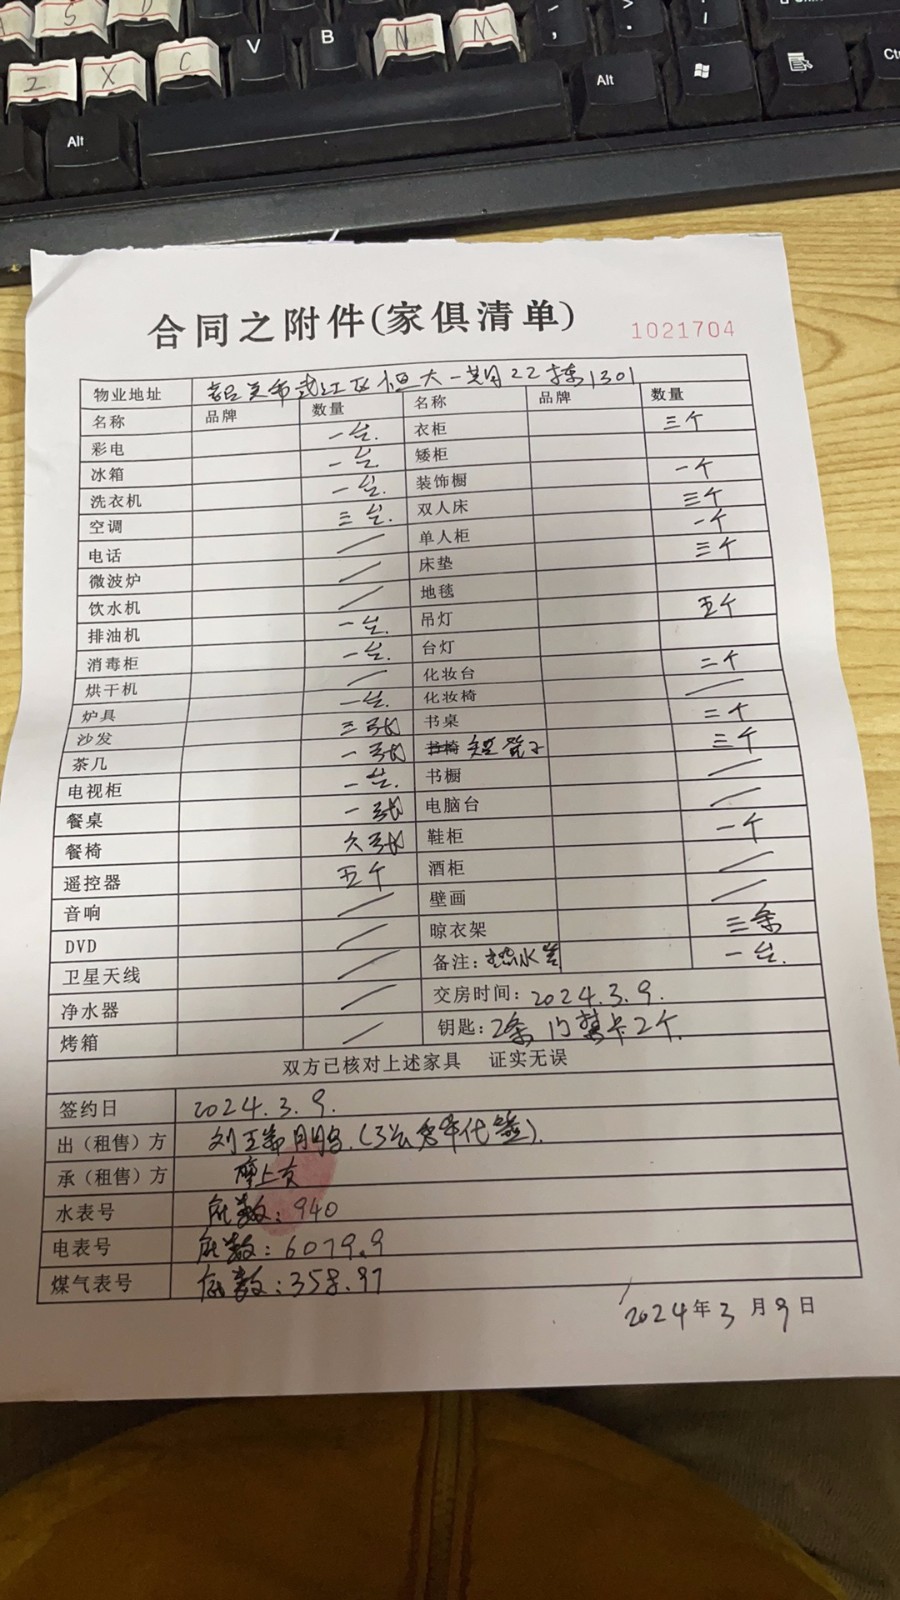 S D
Z X C V B N M
Alt Alt Ctrl
合同之附件(家俱清单)
1021704
物业地址 韶关市武江区恒大一期22栋1301
名称 品牌 数量 名称 品牌 数量
彩电 一台. 衣柜 三个
冰箱 一台. 矮柜
洗衣机 一台. 装饰橱 一个
空调 三台. 双人床 三个
电话 / 单人柜 一个
微波炉 / 床垫 三个
饮水机 / 地毯
排油机 一台. 吊灯 五个
消毒柜 一台. 台灯
烘干机 / 化妆台 二个
炉具 一台. 化妆椅 /
沙发 三张 书桌 二个
茶几 一张 书椅 短凳子 三个
电视柜 一台. 书橱 /
餐桌 一张 电脑台 /
餐椅 六张 鞋柜 一个
遥控器 五个 酒柜 /
音响 / 壁画 /
DVD / 晾衣架 三条
卫星天线 / 备注: 热水器 一台.
净水器 / 交房时间: 2024.3.9.
烤箱 / 钥匙: 2条 门禁卡2个.
双方已核对上述家具 证实无误
签约日 2024.3.9.
出（租售）方
承（租售）方
水表号 底数: 940
电表号 底数: 6079.9
煤气表号 底数: 358.97
2024年3月9日